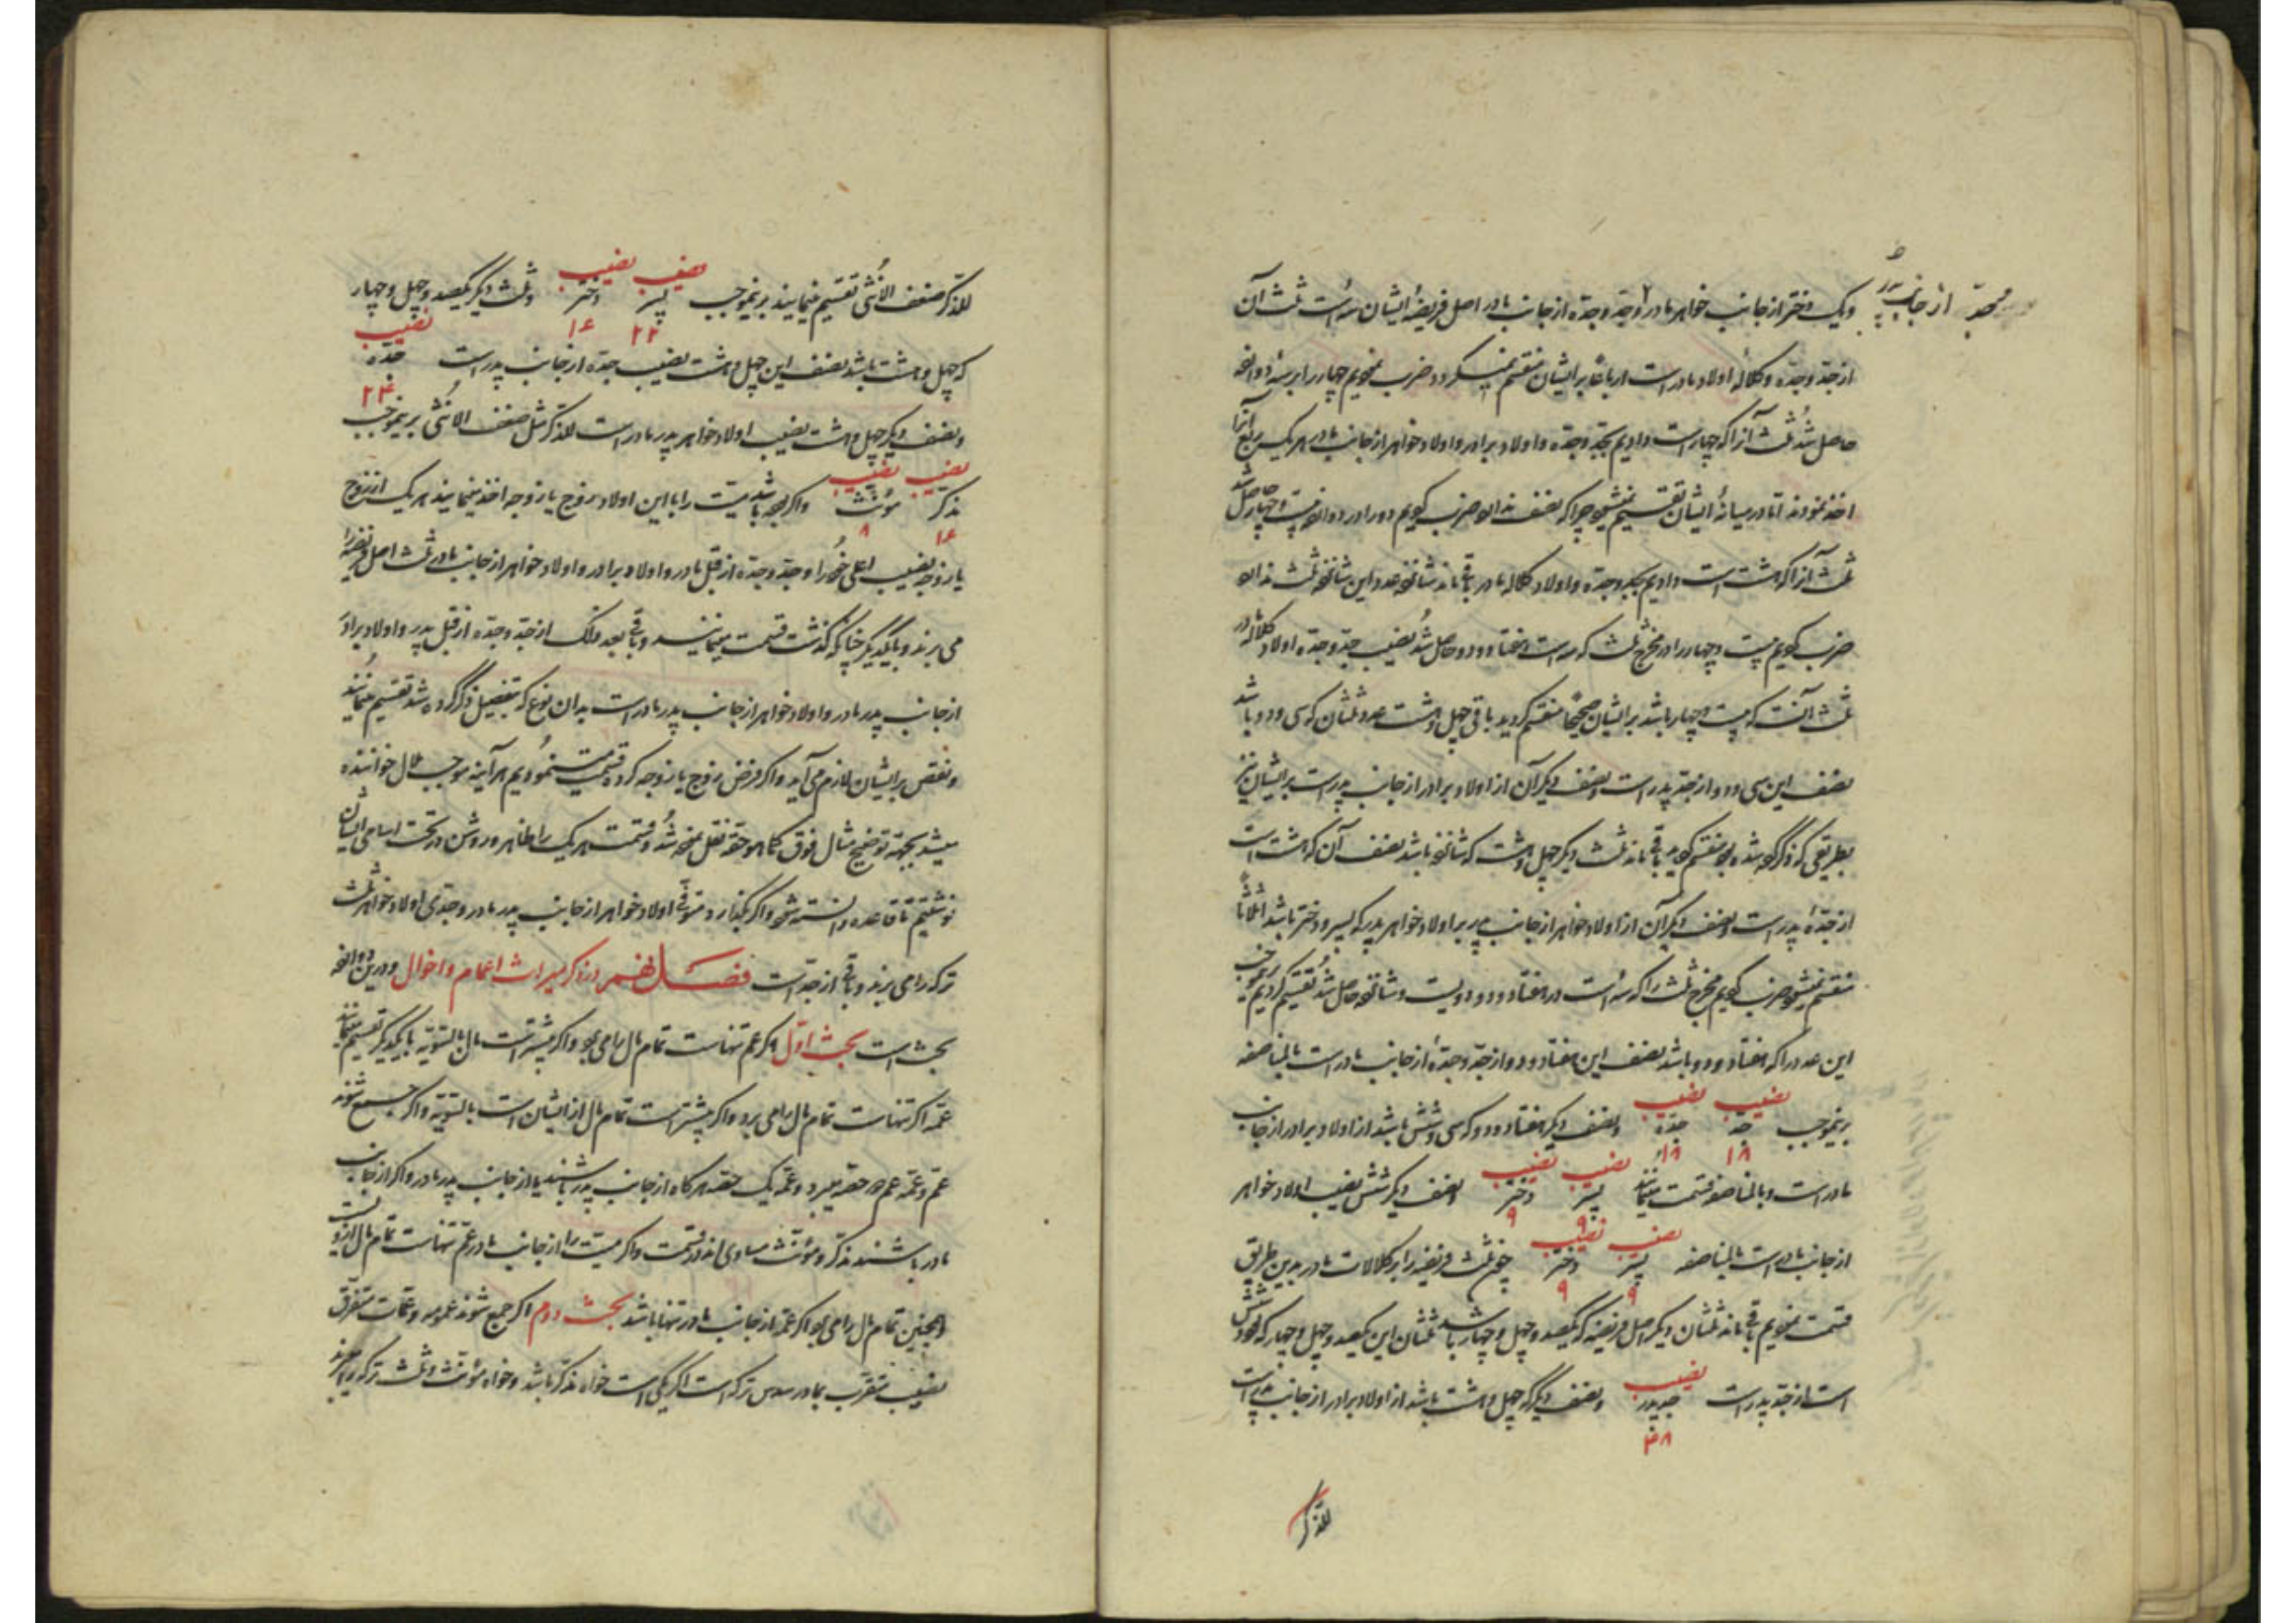 و یک دختر از جانب خواهر مادر و جدّ و جدّه از جانب مادر اصل فریضهٔ ایشان سه است ثلث آن
از جدّ و جدّه و کلالهٔ اولاد مادر است ارباعاً بر ایشان منقسم نمیگردد ضرب نمودیم چهار را بر سه دوانزده
حاصل شد ثلث آنرا که چهار است دادیم بجدّ و جدّه و اولاد برادر و اولاد خواهر از جانب مادر هر یک ربع آنرا
اخذ نمودند اما در میانهٔ ایشان تقسیم نمیشود چرا که نصف ندارد ضرب کردیم دو را در دوانزده بیست و چهار حاصل شد
ثلث آنرا که هشت است دادیم بجد و جدّه و اولاد کلاله مادر باقی ماند شانزده عدد این شانزده ثلث ندارد
ضرب کردیم بیست و چهار را در مخرج ثلث که سه است هفتاد و دو حاصل شد نصیب جدّ و جدّه اولاد کلاله مادر
ثلث آنست که بیست و چهار باشد بر ایشان صحیحاً منقسم گردید باقی چهل و هشت عدد ثلثان که سی و دو باشد
نصف این سی و دو از جد پدر است و نصف دیگر آن از اولاد برادر از جانب پدر است بر ایشان نیز
بطریقی که ذکر کرده شده بود منقسم گردید باقی ماند ثلث دیگر چهل و هشت که شانزده باشد نصف آن که هشت است
از جدّهٔ پدر است و نصف دیگر آن از اولاد خواهر از جانب پدر بر اولاد خواهر پدر که پسر و دختر باشد اثلاثاً
منقسم نمیشود ضرب کردیم مخرج ثلث را که سه است در هفتاد و دو دویست و شانزده حاصل شد تقسیم کردیم برینموجب
این عدد را که هفتاد و دو باشد نصف این هفتاد و دو از جدّ و جدّهٔ از جانب مادر است بالمناصفه
برینموجب نصیب جد ۱۸ نصیب جده ۱۸ و نصف دیگر هفتاد و دو که سی و شش باشد از اولاد برادر از جانب
مادر است و بالمناصفه قسمت مینمایند نصیب پسر ۹ نصیب دختر ۹ و نصف دیگر شش نصیب اولاد خواهر
از جانب مادر است بالمناصفه نصیب پسر ۹ نصیب دختر ۹ چون ثلث فریضه را بر کلالات مادر بدین طریق
قسمت نمودیم باقی ماند ثلثان دیگر اصل فریضه که یکصد و چهل و چهار باشد ثلثان این یکصد و چهل و چهار که نود و شش
است از جد پدر است نصیب جد پدر ۴۸ و نصف دیگر که چهل و هشت باشد از اولاد برادر از جانب پدر است
للذکر
للذکر ضعف الانثی تقسیم مینمایند برینموجب نصیب پسر ۳۲ نصیب دختر ۱۶ و ثلث دیگر یکصد و چهل و چهار
که چهل و هشت باشد نصف این چهل و هشت نصیب جدّه از جانب پدر است نصیب جدّه ۲۴
و نصف دیگر چهل و هشت نصیب اولاد خواهر پدر مادر است للذکر مثل ضعف الانثی برینموجب
نصیب مذکر ۱۶ نصیب مؤنث ۸ و اگر بوده باشد میت را با این اولاد زوج یا زوجه اخذ مینمایند هر یک از زوج
یا زوجه نصیب اعلی خود را و جدّ و جدّه از قبل مادر و اولاد برادر و اولاد خواهر از جانب مادر ثلث اصل فریضه را
می برند و با یکدیگر چنانکه گذشت قسمت مینمایند و باقی بعد ذلک از جدّ و جدّه از قبل پدر و اولاد برادر
از جانب پدر مادر و اولاد خواهر از جانب پدر مادر است بدان نوع که بتفصیل ذکر کرده شد تقسیم مینمایند
و نقص بر ایشان لازم می آید و اگر فرض زوج یا زوجه کرده قسمت مینمودیم هر آینه موجب ملال خواننده
میشد بجهة توضیح مثال فوق کما هو حقه نقل نموده شد و قسمت هر یک را ظاهر و روشن در تحت اسامی ایشان
نوشتیم تا قاعده دانسته شود و اگر بگذارد متوفی اولاد خواهر از جانب پدر مادر و جدی اولاد خواهر ثلث
ترکه را می برند و باقی از جدّ است فصل نهم در ذکر میراث اعمام و اخوال و درین دوانزده
بحث است بحث اوّل اگر عم تنهاست تمام مال را می برد و اگر بیشتر است مال بالسّویّه با یکدیگر تقسیم مینمایند
عمّه اگر تنهاست تمام مال را می برد و اگر بیشتر است تمام مال از ایشان است بالسّویّه و اگر جمع شوند
عمّ و عمّه عم دو حصّه میبرد و عمّه یک حصّه هر گاه از جانب پدر باشند یا از جانب پدر مادر و اگر از جانب
مادر باشند مذکر و مؤنث مساوی اند در قسمت و اگر میّت را از جانب مادر عم تنهاست تمام مال از وست
و همچنین تمام مال را می برد اگر عمّه از جانب مادر تنها باشد بحث دوم اگر جمع شوند عمومه و عمّات متفرّق
نصیب متقرّب بمادر سدس ترکه است اگر یکی است خواه مذکر باشد و خواه مؤنث و ثلث ترکه را میبرند